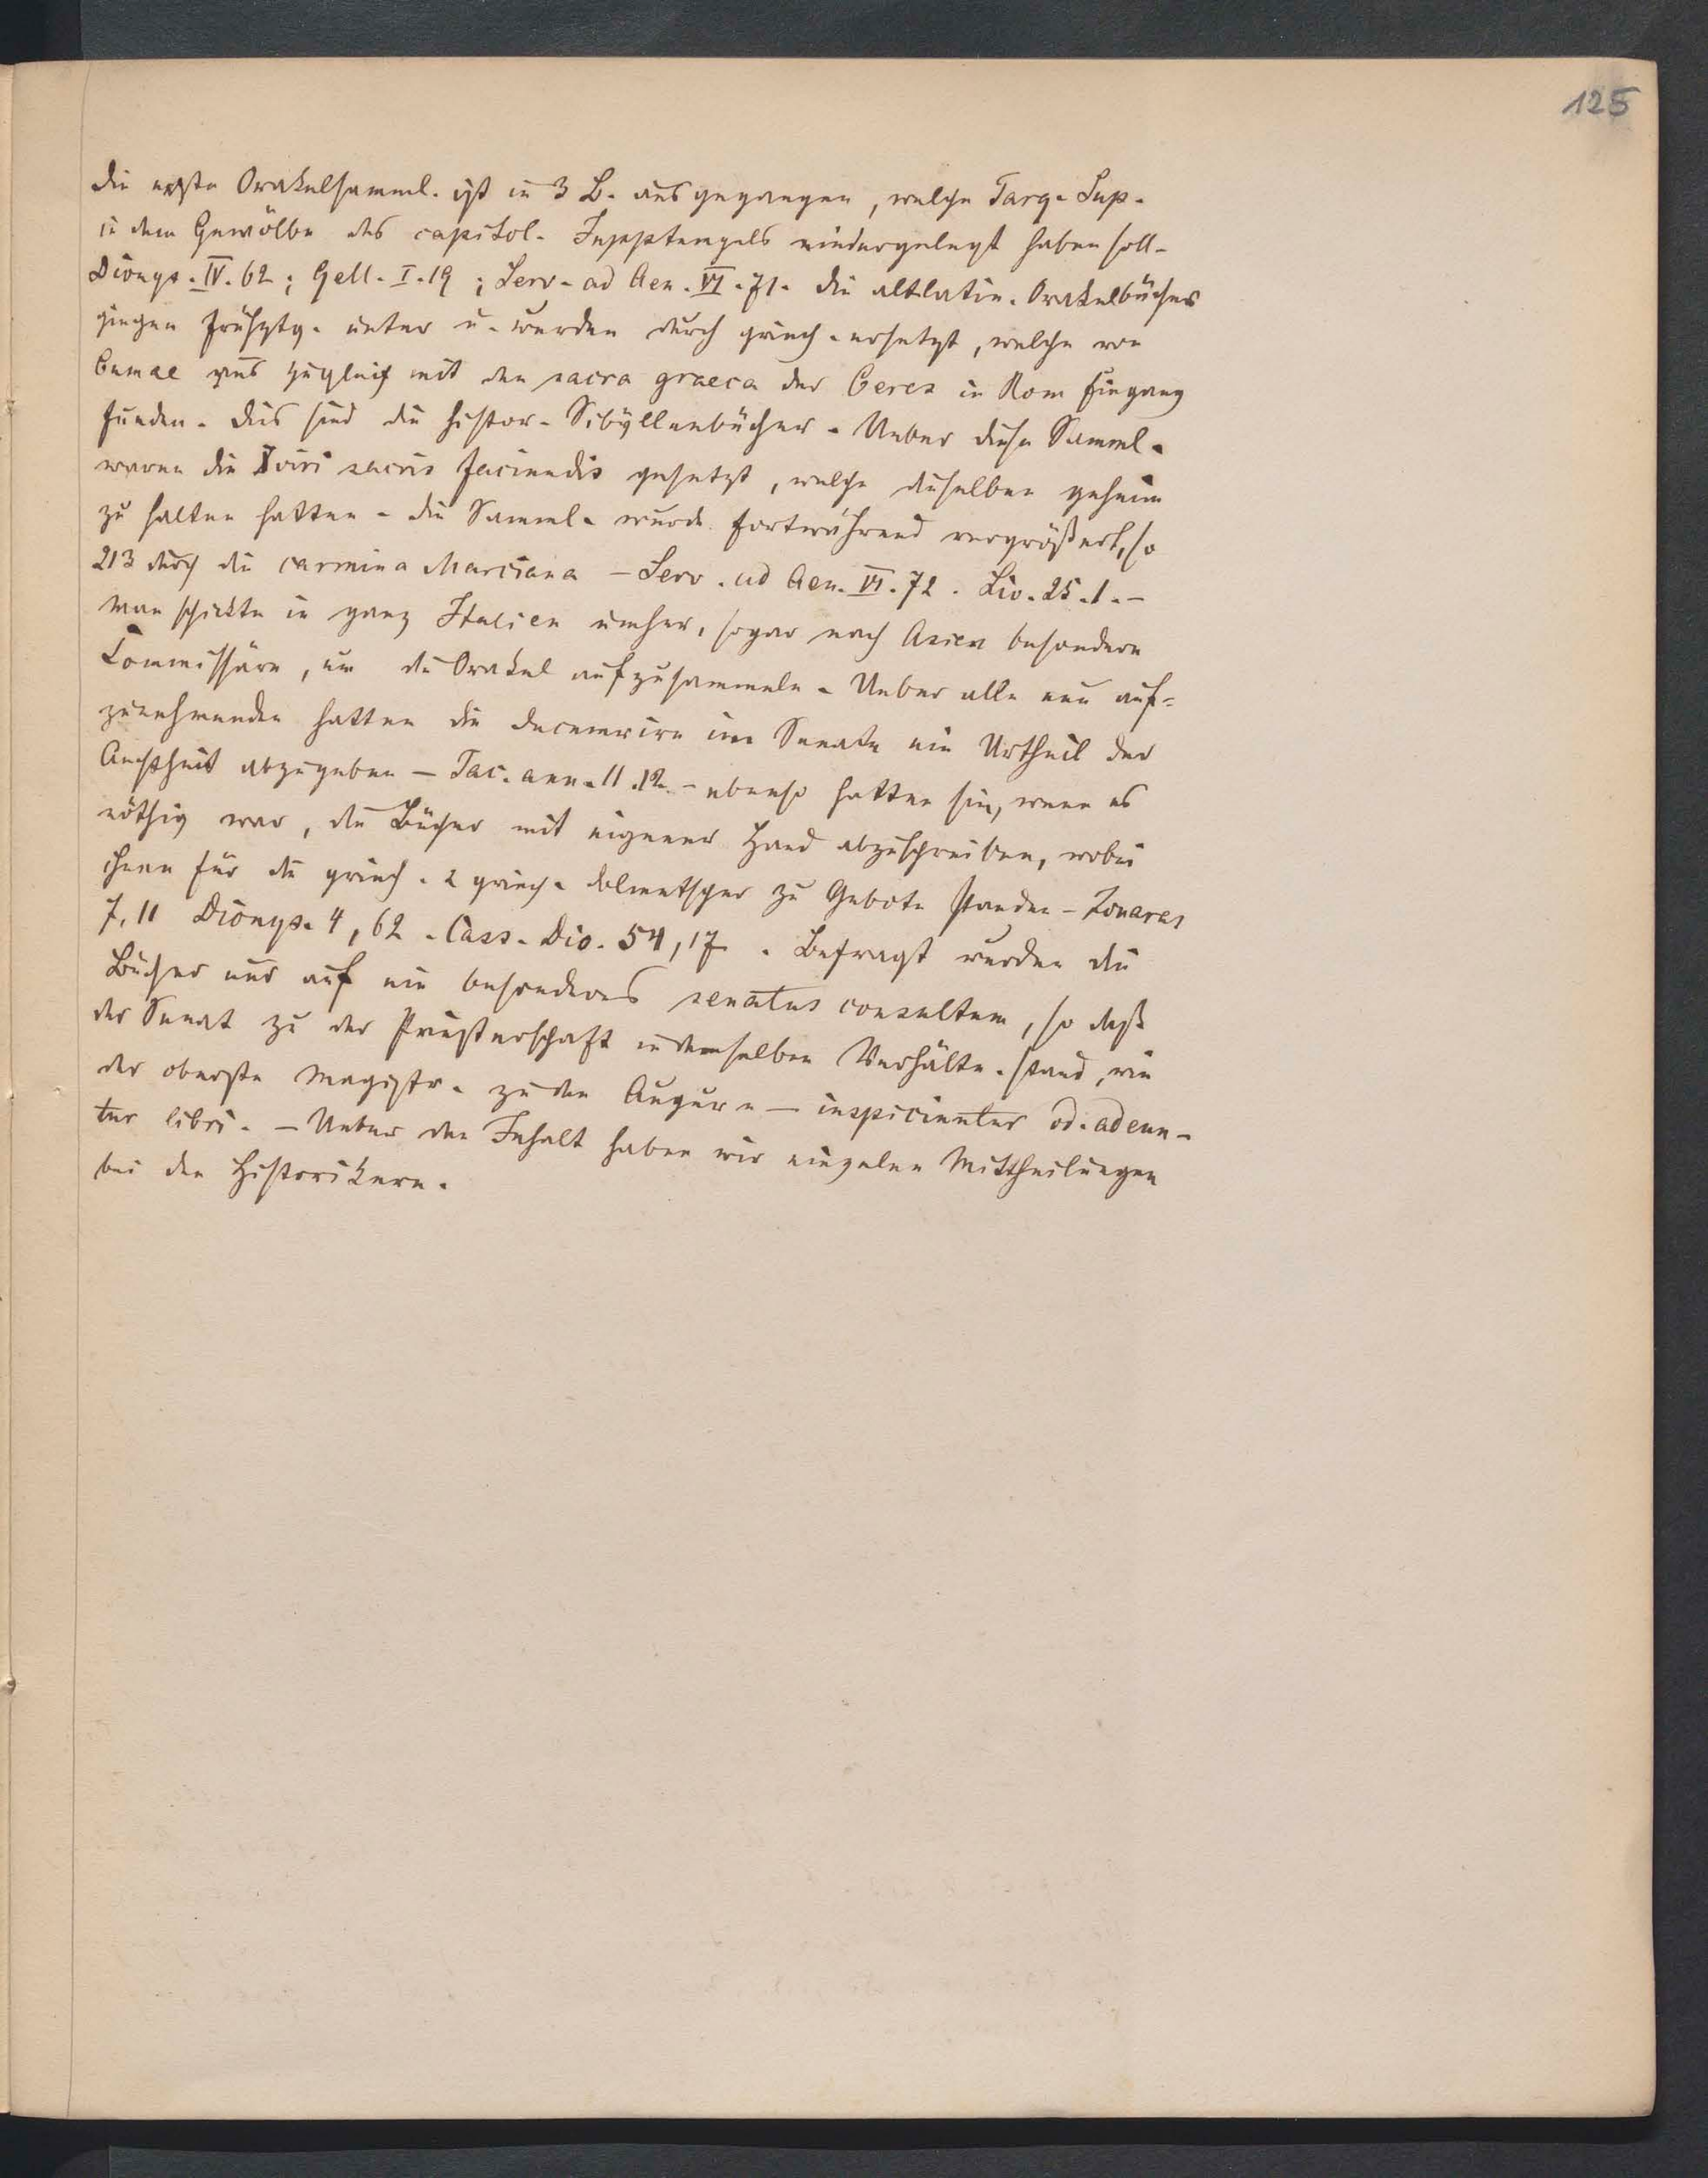 125
die erste Orakelsamml. ist in 3 B. ausgegangen, welche Tarq. Sup.
in dem Gewölbe des capitol. Juppitempels niedergelegt haben soll.
Dionys. IV. 62; Gell. I. 19; Serv. ad Aen. VI. 71. die altlatin. Orakelbücher
giengen frühztg. unter u. wurden durch griech. ersetzt, welche von
Cumae aus zugleich mit den sacra graeca der Ceres in Rom Eingang
funden. Dies sind die histor. Sibyllenbücher. Ueber diese Samml.
waren die viri sacris faciundis gesetzt, welche dieselben geheim
zu halten hatten. die Samml. wurde fortwährend vergrößert, so
213 durch die carmina Marciana – Serv. ad Aen. VI. 72. Liv. 25. 1. –
Man schickte in ganz Italien umher, sogar nach Asien besondere
Commissäre, um die Orakel aufzusammeln. Ueber alle neu auf-
zunehmenden hatten die decemvirn im Senate ein Urtheil der
Aechtheit abzugeben – Tac. ann. 11. 12. – ebenso hatten sie, wenn es
nöthig war, die Bücher mit eigener Hand abzuschreiben, wobei
ihnen für die griech. 2 griech. dolmetscher zu Gebote standen – Zonaras
7, 11 Dionys. 4, 62. Cass. Dio. 54, 17. Befragt wurden die
Bücher nur auf ein besonderes senatus consultum, so daß
der Senat zu der Priesterschaft in demselben Verhältn. stand, wie
der oberste Magistr. zu den Augurn – inspiciuntur od. adeun-
tur libri. – Ueber den Inhalt haben wir einzelne Mittheilungen
bei den Historikern.